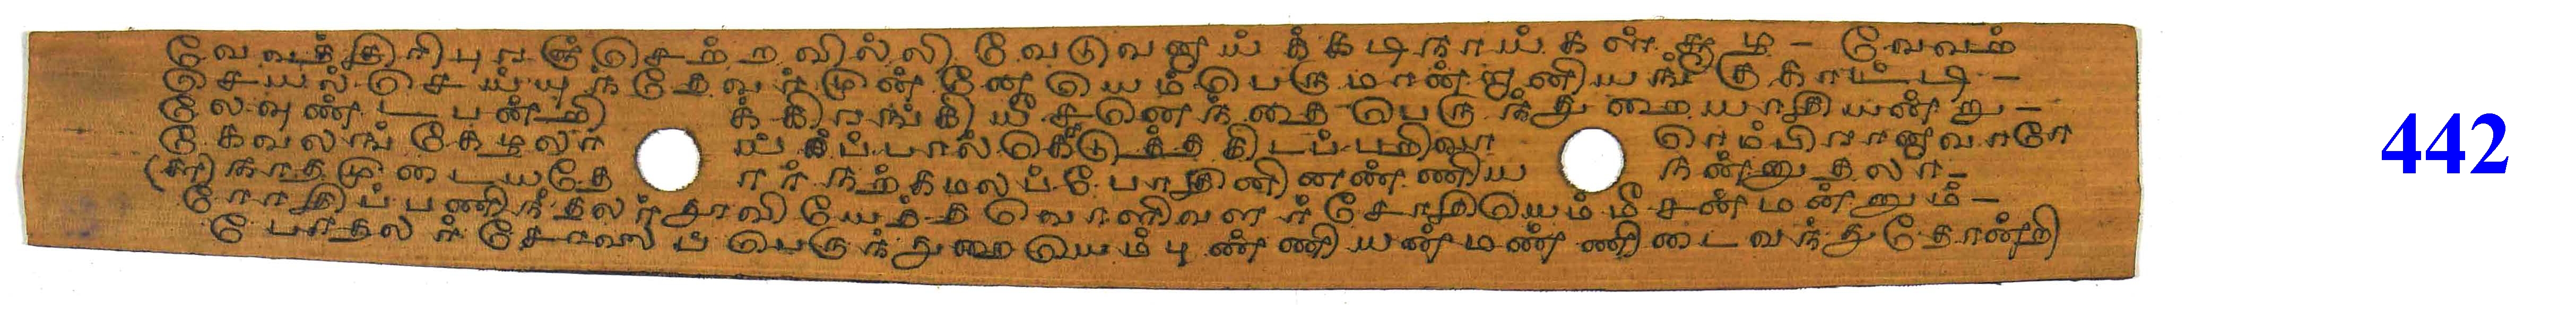 வேவத்திரிபுரஞ்செற்றவில்லி வேடுவனுய்க்கடிநாய்கள்சூழ - வேவற்
செயல்செய்யுந்தேவர்முன்னேயெம்பெருமான்றுனியங்குகாட்டி -
லேவுண்டபன்றி க்கிரங்கியீசனெந்தை பெருந்துறையாதியன்று -
கேவலங்கேழலா ய்ப்பால்கெடுத்தகிடப்பறிவா ரெம்பிரானாவாரே
(கா) நாதமுடையதே ார்நற்கமலப்போதினினண்ணிய நன்னுதலா -
ரோதிப்பணிந்தலர்தூவியேத்தவொளிவளர்சோதியெம்மீசன்மன்னும் -
போதலர்சோலைப்பெருந்துறையெம்புண்ணியன்மண்ணிடைவந்துதோன்றி
442